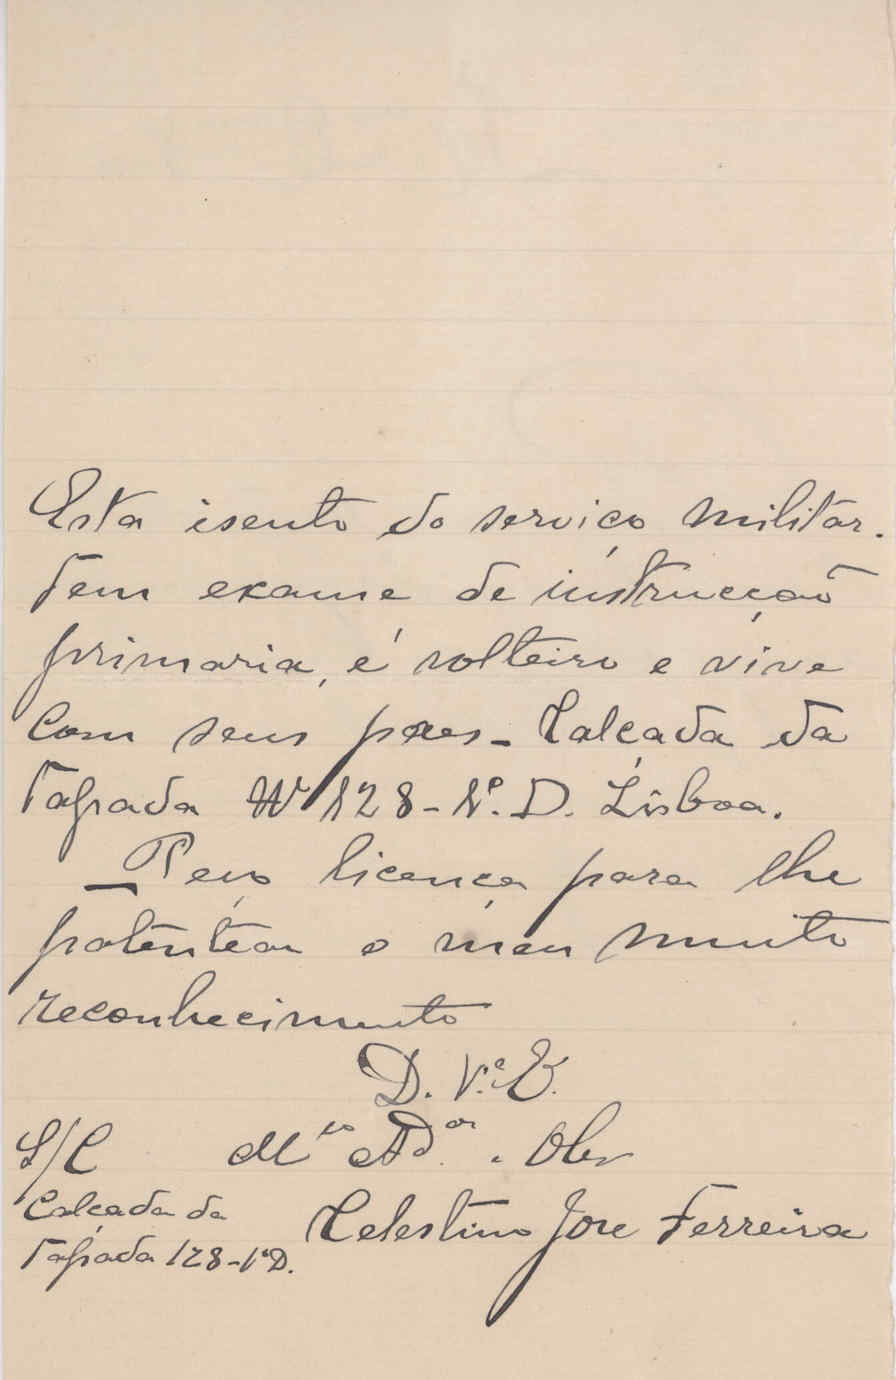 Esta isento do serviço militar.
Tem exame de instrucção
primaria, é solteiro e vive
com seus paes - Calçada da
Tapada Nº 128 - 1º. D. Lisboa.
Peço licença para lhe
patentear o meu muito
reconhecimento
D. V.ª E.
S/C Mto Ador. e Obr
Calçada da
Celestino Jose Ferreira
Tapada 128-1º D.